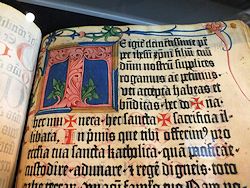 TE igit̃ clementissime pr̃
per ihm̃ xp̃m filiũ tuũ
dñm nostrũ supplices
rogamus ac petimus.
vti accepta habeas et
bñdicas. hec do✠na
hec mu✠nera. hec sancta ✠ sacrificia il
libata. In primis que tibi offerimꝰ pro
ecclesia tua sancta katholica. quã pacificare
custodire. adunare. et regere digneris. toto
orbe terrarum